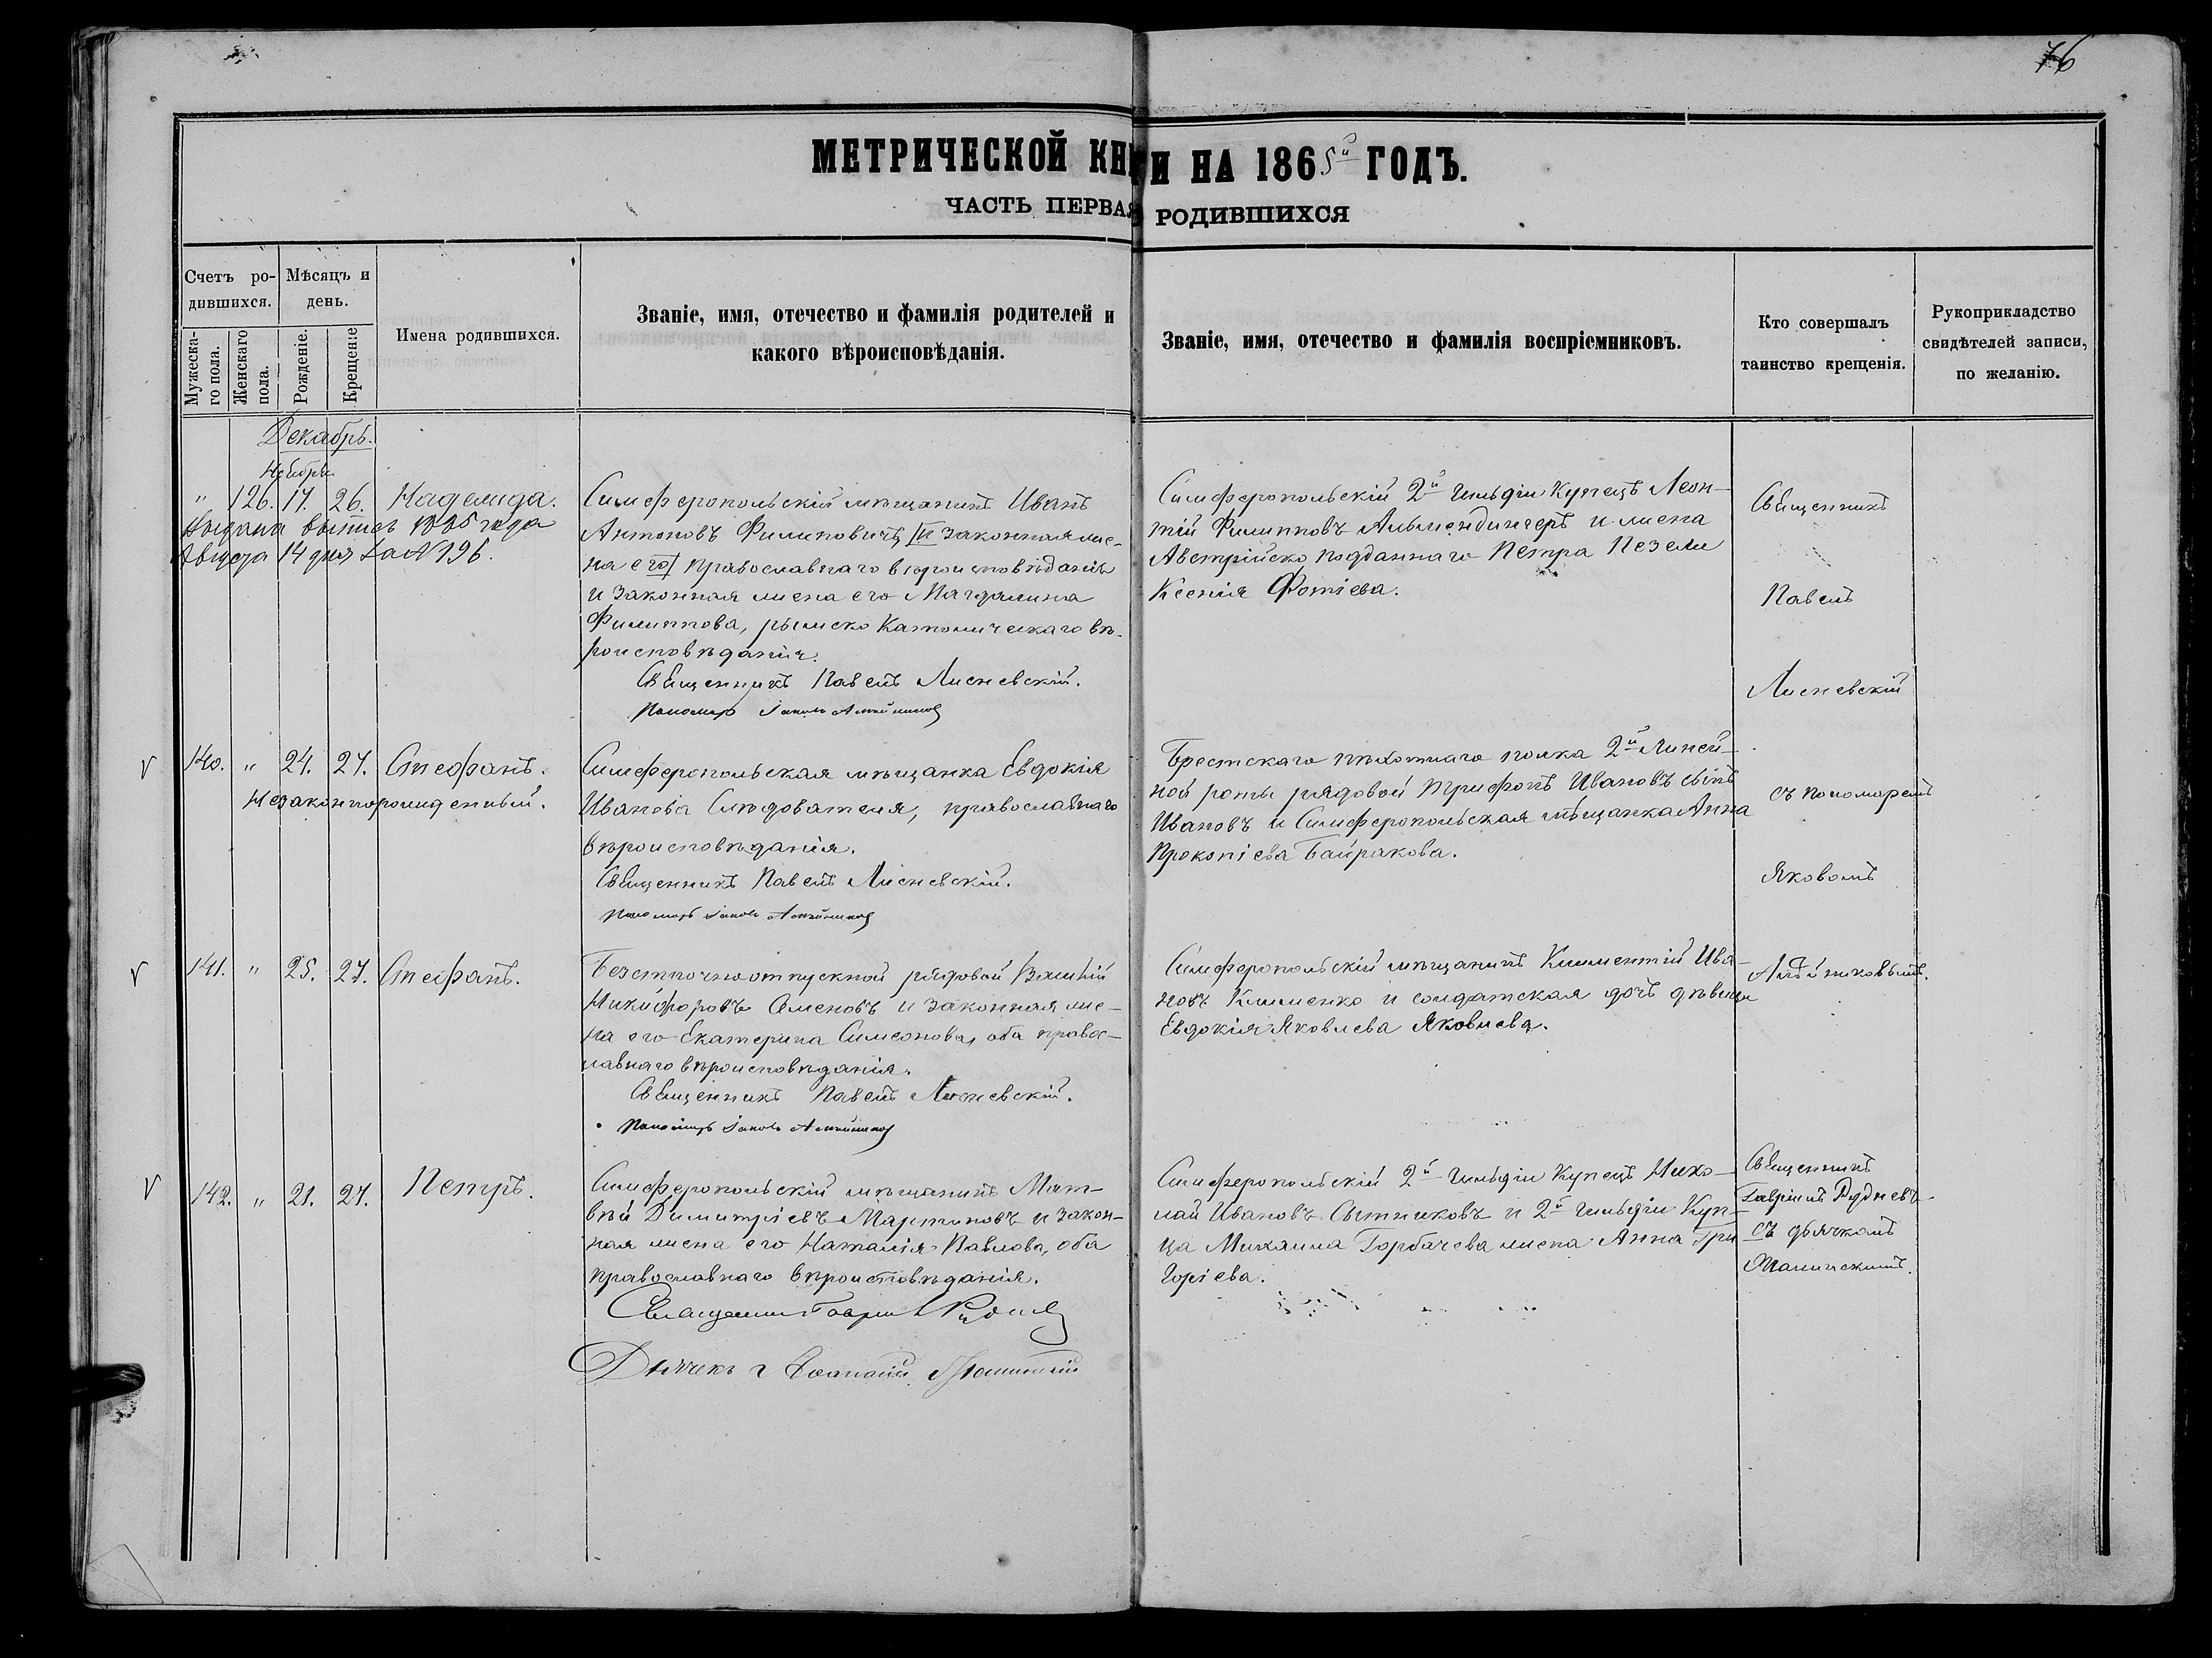 76
МЕТРИЧЕСКОЙ КНИГИ НА 1865й ГОДЪ.
ЧАСТЬ ПЕРВАЯ РОДИВШИХСЯ
Счетъ ро-
дившихся.
Мужеска-
го пола.
Женскаго
пола.
Мѣсяцъ и
день.
Рожденіе.
Крещеніе
Имена родившихся.
Званіе, имя, отечество и фамилія родителей и
какого вѣроисповѣданія.
Званіе, имя, отечество и фамилія воспріемниковъ.
Кто совершалъ
таинство крещенія.
Рукоприкладство
свидѣтелей записи,
по желанію.
Декабрь.
Ноября
" 126. 17. 26. Надежда.
Выдана выпись 1895 года
Августа 14 дня за № 196.
Симферопольскій мѣщанинъ Иванъ
Антоновъ Филиповичъ, и законная же-
на его православнаго вѣроисповѣданія
и законная жена его Магдалина
Филиппова, римско католическаго вѣ-
роисповѣданія.
Священникъ Павелъ Лисневскій.
Пономарь Іаковъ
Симферопольскій 2й гильдіи купецъ Леон-
тій Филипповъ Альмендингеръ и жена
Австрійско подданнаго Петра Пезели
Ксенія Фотіева.
Священникъ
Павелъ
Лисневскій
съ пономаремъ
Яковомъ
140. " 24. 27. Стефанъ.
Незаконнорожденный.
Симферопольская мѣщанка Евдокія
Иванова Слѣдователя, православнаго
вѣроисповѣданія.
Священникъ Павелъ Лисневскій.
Пономарь Іаковъ
Брестскаго пѣхотнаго полка 2й Линей-
ной роты рядовой Трифонъ Ивановъ сынъ
Ивановъ и Симферопольская мѣщанка Анна
Прокопіева Байракова.
141. " 25. 27. Стефанъ.
Безсрочноотпускной рядовой Василій
Никифоровъ Семеновъ и законная же-
на его Екатерина Симеонова, оба право-
славнаго вѣроисповѣданія.
Священникъ Павелъ Лисневскій.
Пономарь Іаковъ
Симферопольскій мѣщанинъ Климентій Ива-
новъ Клименко и солдатская дочь дѣвица
Евдокія Яковлева Яковлева.
142. " 21. 27. Петръ.
Симферопольскій мѣщанинъ Мат-
вѣй Димитріевъ Мартыновъ и закон-
ная жена его Наталія Павлова, оба
православнаго вѣроисповѣданія.
Священникъ Гавріилъ Рудневъ
Дьячекъ
Симферопольскій 2й гильдіи купецъ Нико-
лай Ивановъ Сытниковъ и 2й гильдіи Куп-
ца Михаила Горбачева жена Анна Гри
горіева.
Священникъ
Гавріилъ Рудневъ
съ дьячкомъ